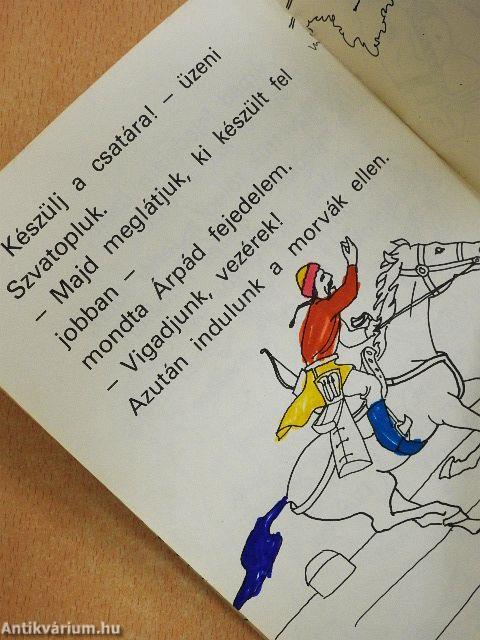 Készülj a csatára! – üzeni
Szvatopluk.
– Majd meglátjuk, ki készült fel
jobban –
mondta Árpád fejedelem.
– Vigadjunk, vezérek!
Azután indulunk a morvák ellen.
Antikvárium.hu